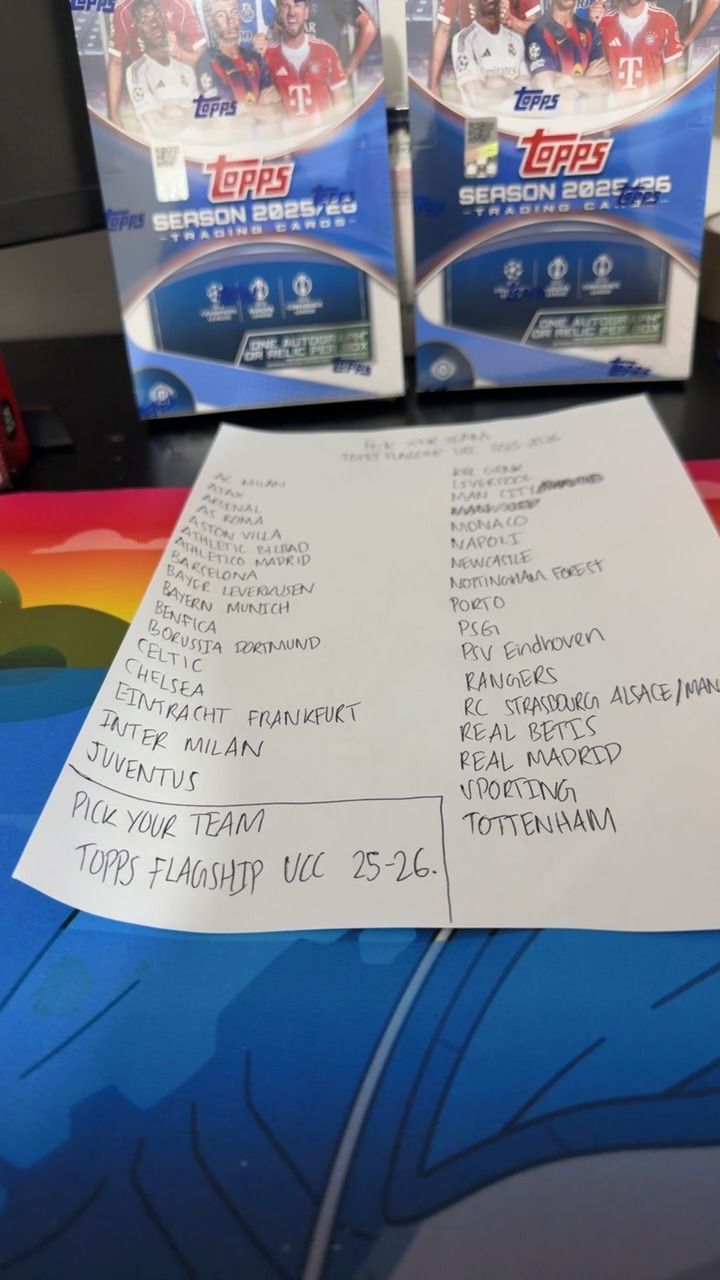 Topps
Topps
SEASON 2025/26
-TRADING CARDS-
ONE AUTOGRAPH
OR RELIC PER BOX
Topps
Topps
Topps
SEASON 2025/26
-TRADING CA
Topps
ONE AUTOGRAPH
OR RELIC PER BOX
Topps
PICK YOUR TEAM
TOPPS FLAGSHIP UCC 2025-2026
AC MILAN
AJAX
ARSENAL
AS ROMA
ASTON VILLA
ATHLETIC BILBAO
ATHLETICO MADRID
BARCELONA
BAYER LEVERKUSEN
BAYERN MUNICH
BENFICA
BORUSSIA DORTMUND
CELTIC
CHELSEA
EINTRACHT FRANKFURT
INTER MILAN
JUVENTUS
KRC GENK
LIVERPOOL
MAN CITY
MONACO
NAPOLI
NEWCASTLE
NOTTINGHAM FOREST
PORTO
PSG
PSV Eindhoven
RANGERS
RC STRASBOURG ALSACE/MAN
REAL BETIS
REAL MADRID
SPORTING
TOTTENHAM
PICK YOUR TEAM
TOPPS FLAGSHIP UCC 25-26.